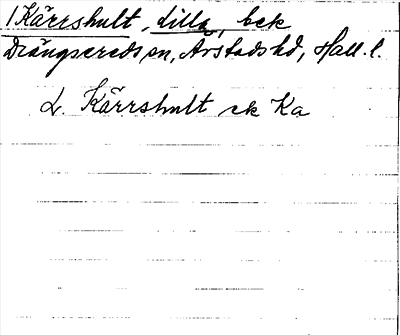 1 Kärrshult, Lilla, bek
Drängsereds sn, Årstads hd, Hall. l.
L. Kärrshult ek Ka